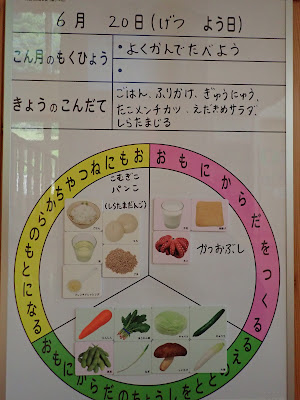 6月 20日(げつ よう日)
こん月のもくひょう
・よくかんでたべよう
・
きょうのこんだて
ごはん、ふりかけ、ぎゅうにゅう、
たこメンチカツ、えだまめサラダ、
しらたまじる
おもにねつやちからのもとになる
おもにからだをつくる
こむぎこ
パンこ
(しらたまだんご)
かつおぶし
おもにからだのちょうしをととのえる